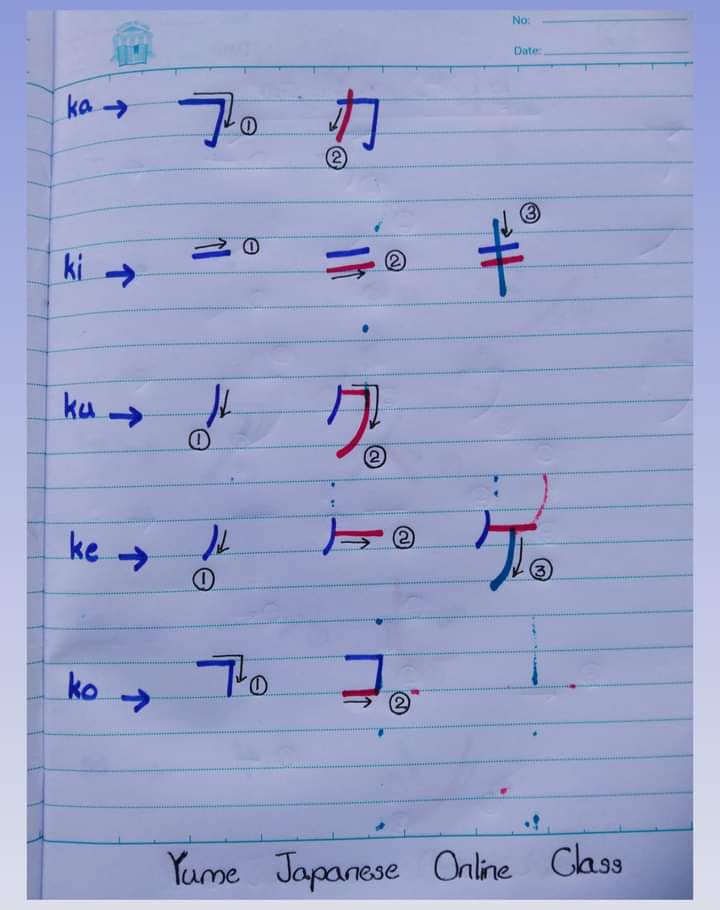 No:
Date:
ka → ① カ ②
ki → ① ② キ ③
ku → ① ク ②
ke → ① ② ケ ③
ko → ① コ ②
Yume Japanese Online Class